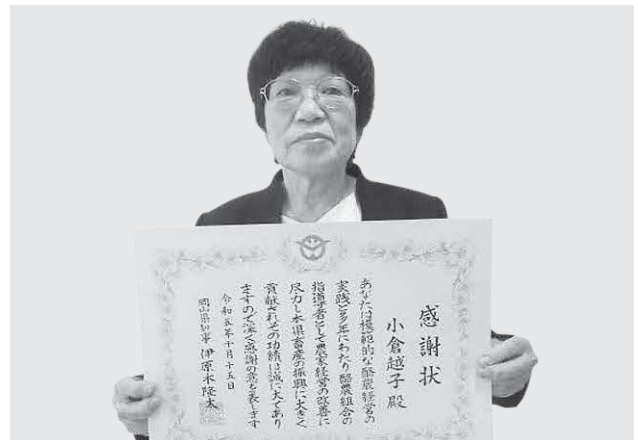 感謝状
小倉越子 殿
あなたは模範的な酪農経営の
実践と多年にわたり酪農組合の
指導者として農家経営の改善に
尽力し本県畜産の振興に大きく
貢献されその功績は誠に大であり
ますので深く感謝の意を表します
令和五年十月十五日
岡山県知事 伊原木隆太